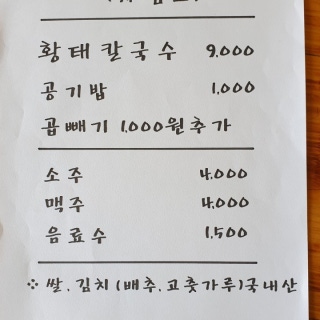 황태칼국수 9,000
공기밥 1,000
곱빼기 1,000원추가
소주 4,000
맥주 4,000
음료수 1,500
※ 쌀, 김치 (배추, 고춧가루)국내산